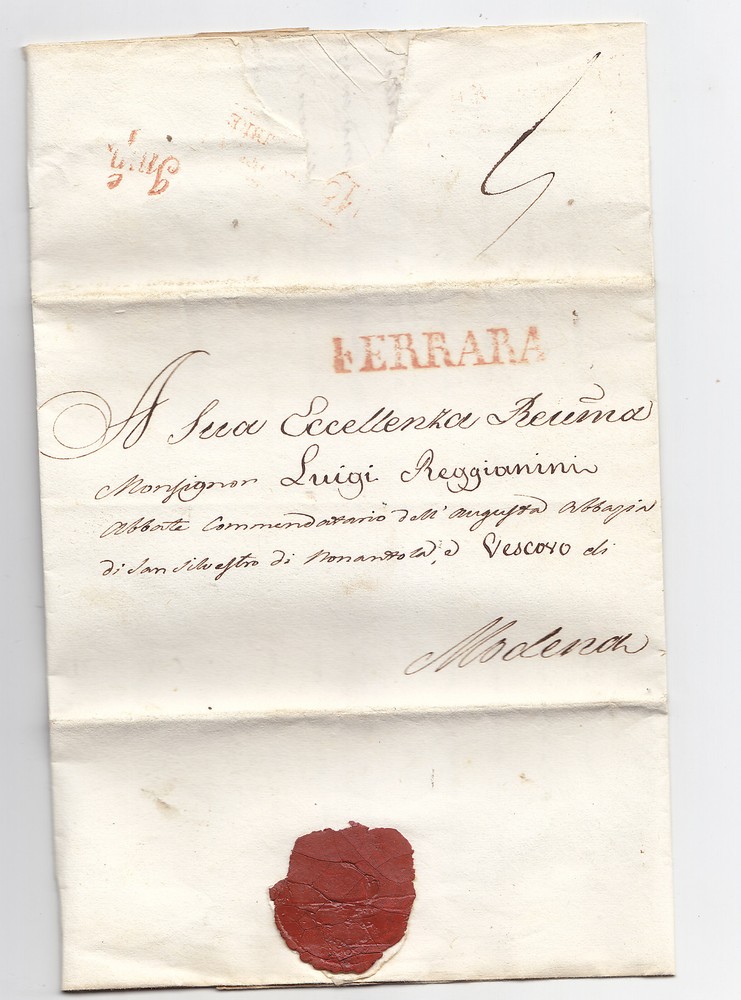 FERRARA
A Sua Eccellenza Reuma
Monsignor Luigi Reggianini
Abbate Commendatario dell' augusta Abbazia
di San Silvestro di Nonantola, e Vescovo di
Modena